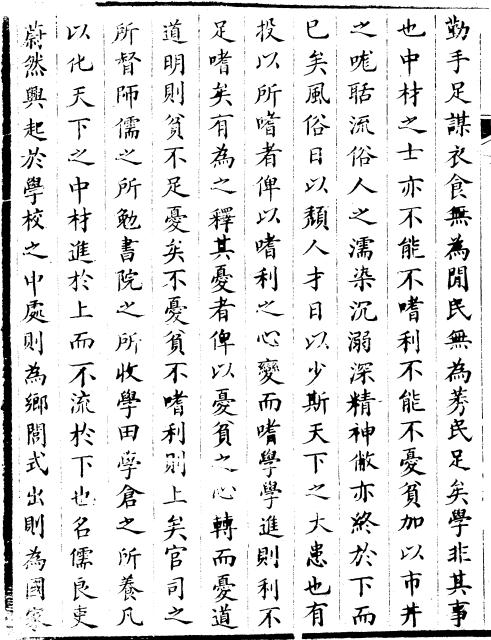 勤手足謀衣食無為閒民無為莠民足矣學非其事
也中材之士亦不能不嗜利不能不憂貧加以市井
之咙聒流俗人之濡染沉溺深精神敝亦終於下而
已矣風俗日以頹人才日以少斯天下之大患也有
投以所嗜者俾以嗜利之心變而嗜學學進則利不
足嗜矣有為之釋其憂者俾以憂貧之心轉而憂道
道明則貧不足憂矣不憂貧不嗜利則上矣官司之
所督師儒之所勉書院之所收學田學倉之所養凡
以化天下之中材進於上而不流於下也名儒良吏
蔚然興起於學校之中處則為鄉閭式出則為國家